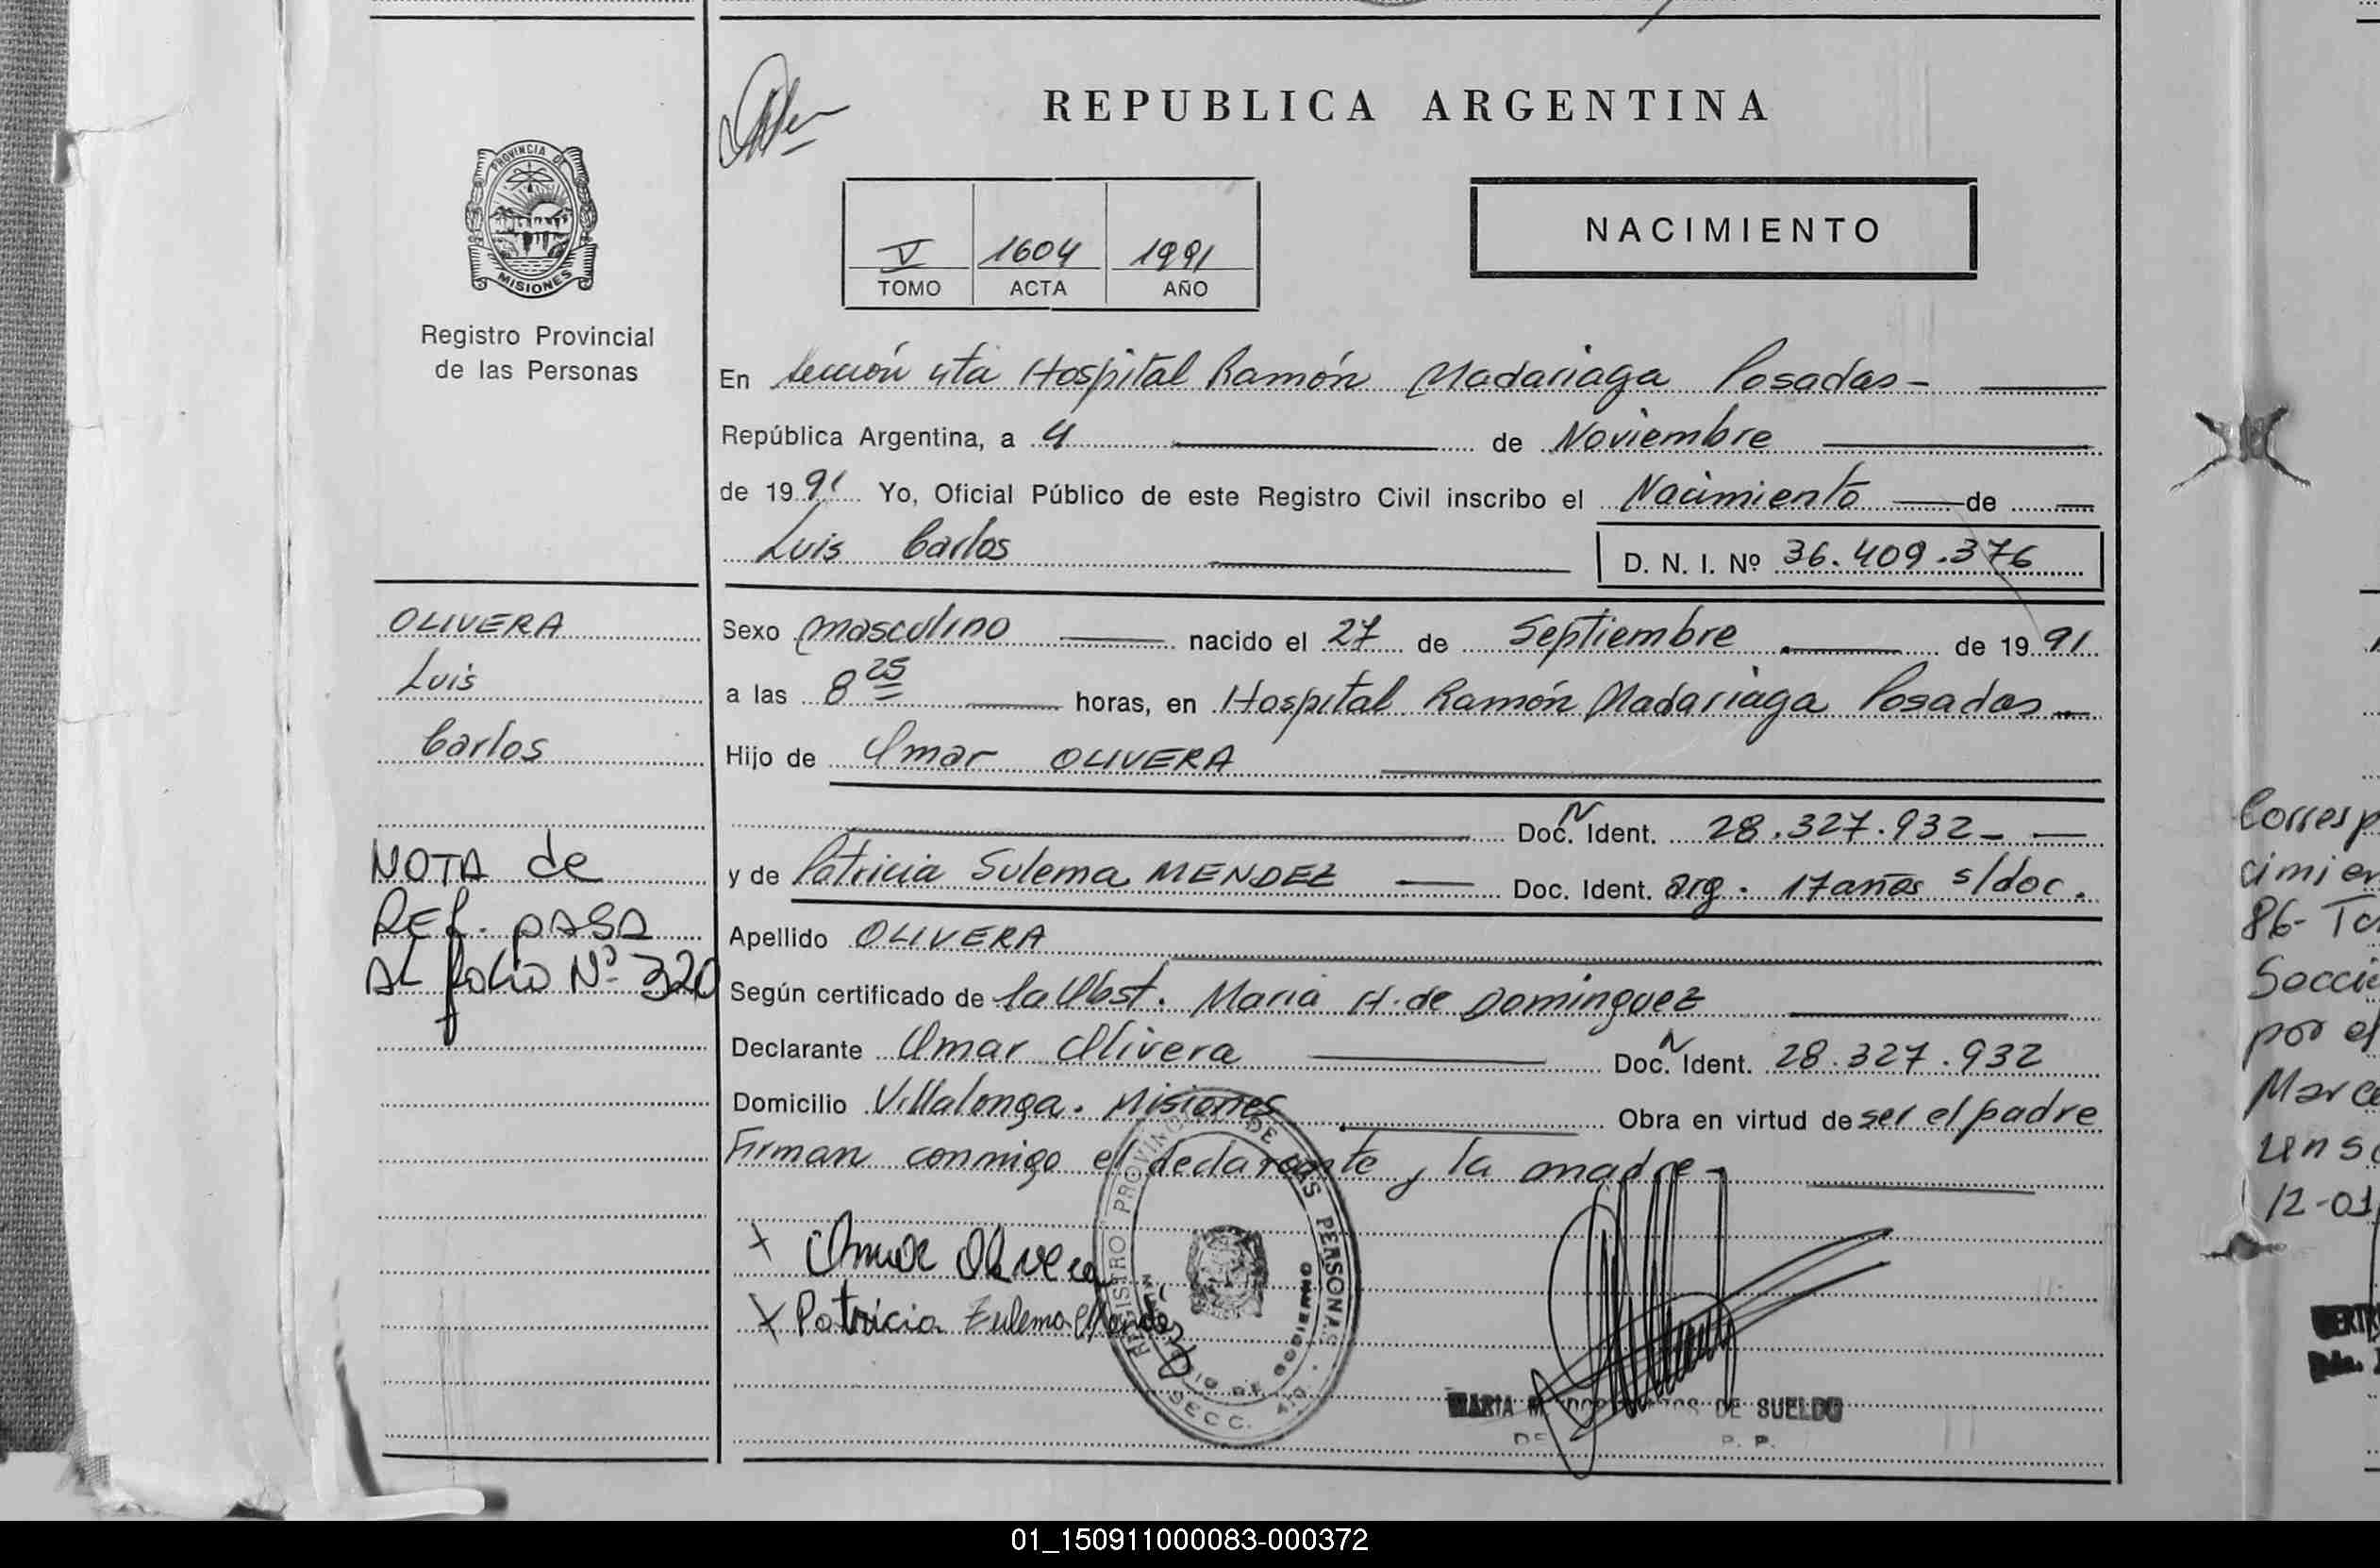 REPUBLICA ARGENTINA
PROVINCIA DE
MISIONES
Registro Provincial
de las Personas
V 1604 1991
TOMO ACTA AÑO
NACIMIENTO
En Sección 4ta Hospital Ramón Madariaga Posadas-
República Argentina, a 4 de Noviembre
de 1991 Yo, Oficial Público de este Registro Civil inscribo el Nacimiento de
Luis Carlos
D. N. I. Nº 36.409.376
OLIVERA
Luis
Carlos
NOTA de
REf. pASA
AL folio Nº 320
Sexo masculino nacido el 27 de Septiembre de 1991
a las 8 25 horas, en Hospital Ramón Madariaga Posadas
Hijo de Omar OLIVERA
Doc. N Ident. 28.327.932-
y de Patricia Sulema MENDEZ Doc. Ident. arg. 17 años s/doc.
Apellido OLIVERA
Según certificado de la Obst. Maria H. de Dominguez
Declarante Omar Olivera Doc. N Ident. 28.327.932
Domicilio Villalonga. Misiones Obra en virtud de ser el padre
Firman conmigo el declarante y la madre-
x Omar Olivera
x Patricia Zulema Mendéz
REGISTRO PROVINCIAL DE LAS PERSONAS
MINISTERIO DE GOBIERNO
SECC. 4ta.
MARIA DE SUELDO
P. P.
Corresp
cimien
86- To
Secció
por el
Marce
uns
12-01
01_150911000083-000372